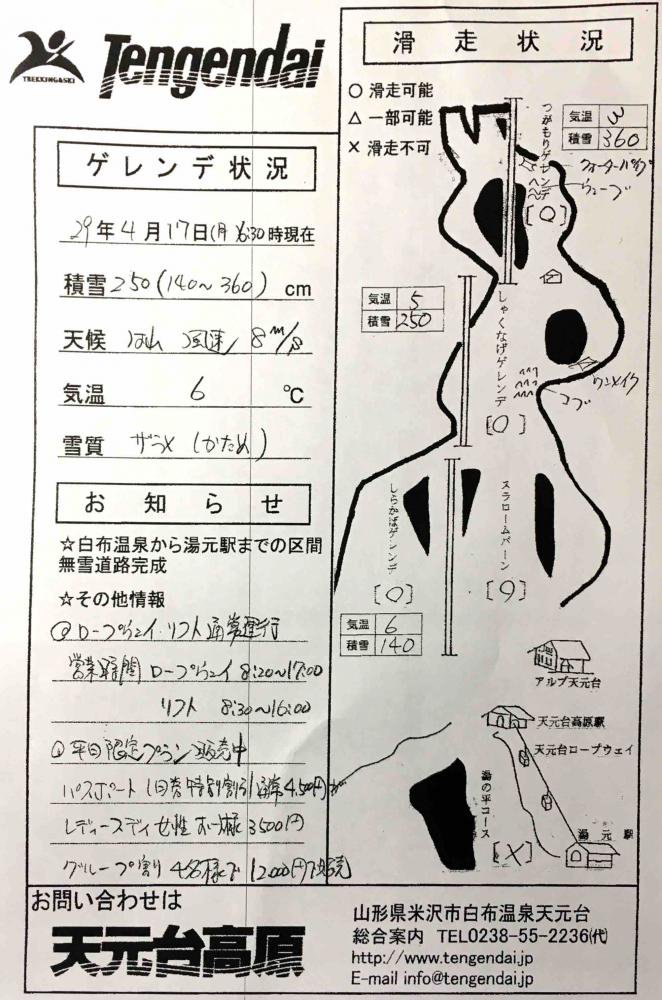 TREKKING&SKI
Tengendai
ゲレンデ状況
29年4月17日(月)6:30時現在
積雪250(140~360)cm
天候 風速 8m/s
気温 6 ℃
雪質 ザラメ(かため)
お知らせ
☆白布温泉から湯元駅までの区間
無雪道路完成
☆その他情報
ロープウェイ・リフト通常運行
営業時間 ロープウェイ 8:20~17:00
リフト 8:30~16:00
平日限定プラン販売中
パスポート1日券特別割引 通常4,500円が
レディースデイ 女性 お一人様 3500円
グループ割り 4名様で 12,000円で販売
滑走状況
○ 滑走可能
△ 一部可能
× 滑走不可
つがもりゲレンデ
[○]
気温 3
積雪 360
クォーターパイプ
ウェーブ
気温 5
積雪 250
しゃくなげゲレンデ
[○]
ワンメイク
コブ
しらかばゲレンデ
[○]
スラロームバーン
[○]
気温 6
積雪 140
アルブ天元台
天元台高原駅
天元台ロープウェイ
湯の平コース
[×]
湯元駅
お問い合わせは
天元台高原
山形県米沢市白布温泉天元台
総合案内 TEL0238-55-2236㈹
http://www.tengendai.jp
E-mail info@tengendai.jp